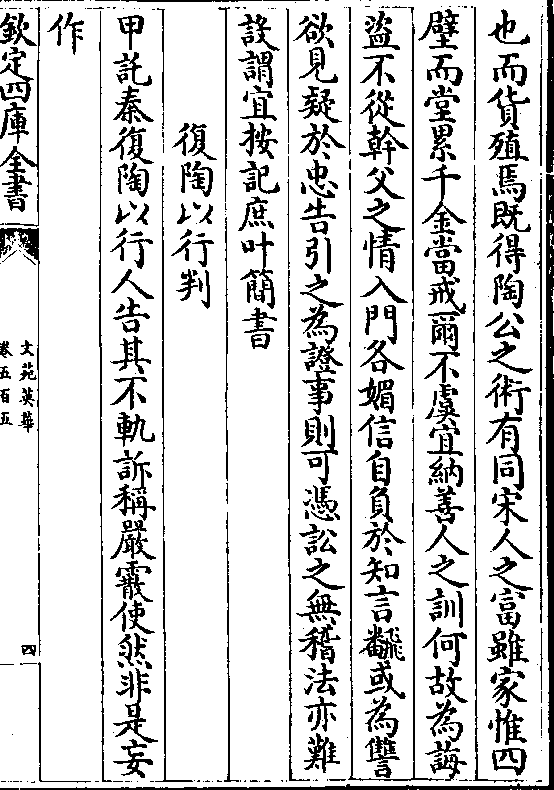 也而貨殖焉既得陶公之術有同宋人之富雖家惟四
壁而堂累千金當戒爾不虞宜納善人之訓何故為誨
盜不從幹父之情入門各媚信自負於知言飜或為讐
欲見疑於忠告引之為證事則可憑訟之無稽法亦難
設謂宜按記庶叶簡書
復陶以行判
甲託秦復陶以行人告其不軌訴稱嚴霰使然非是妄
作
欽定四庫全書
文苑英華
卷五百五
四